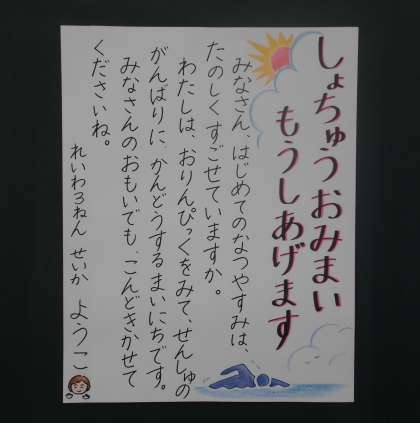 しょちゅうおみまい
もうしあげます
みなさん、はじめてのなつやすみは、
たのしくすごせていますか。
わたしは、おりんぴっくをみて、せんしゅの
がんばりに、かんどうするまいにちです。
みなさんのおもいでも、こんどきかせて
くださいね。
れいわ3ねん せいか ようこ